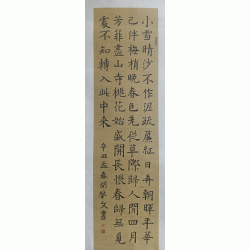 小雪晴沙不作泥疏簾紅日弄朝暉年華
已伴梅梢晚春色先從草際歸人間四月
芳菲盡山寺桃花始盛開長恨春歸無覓
處不知轉入此中來
辛丑孟春 文書